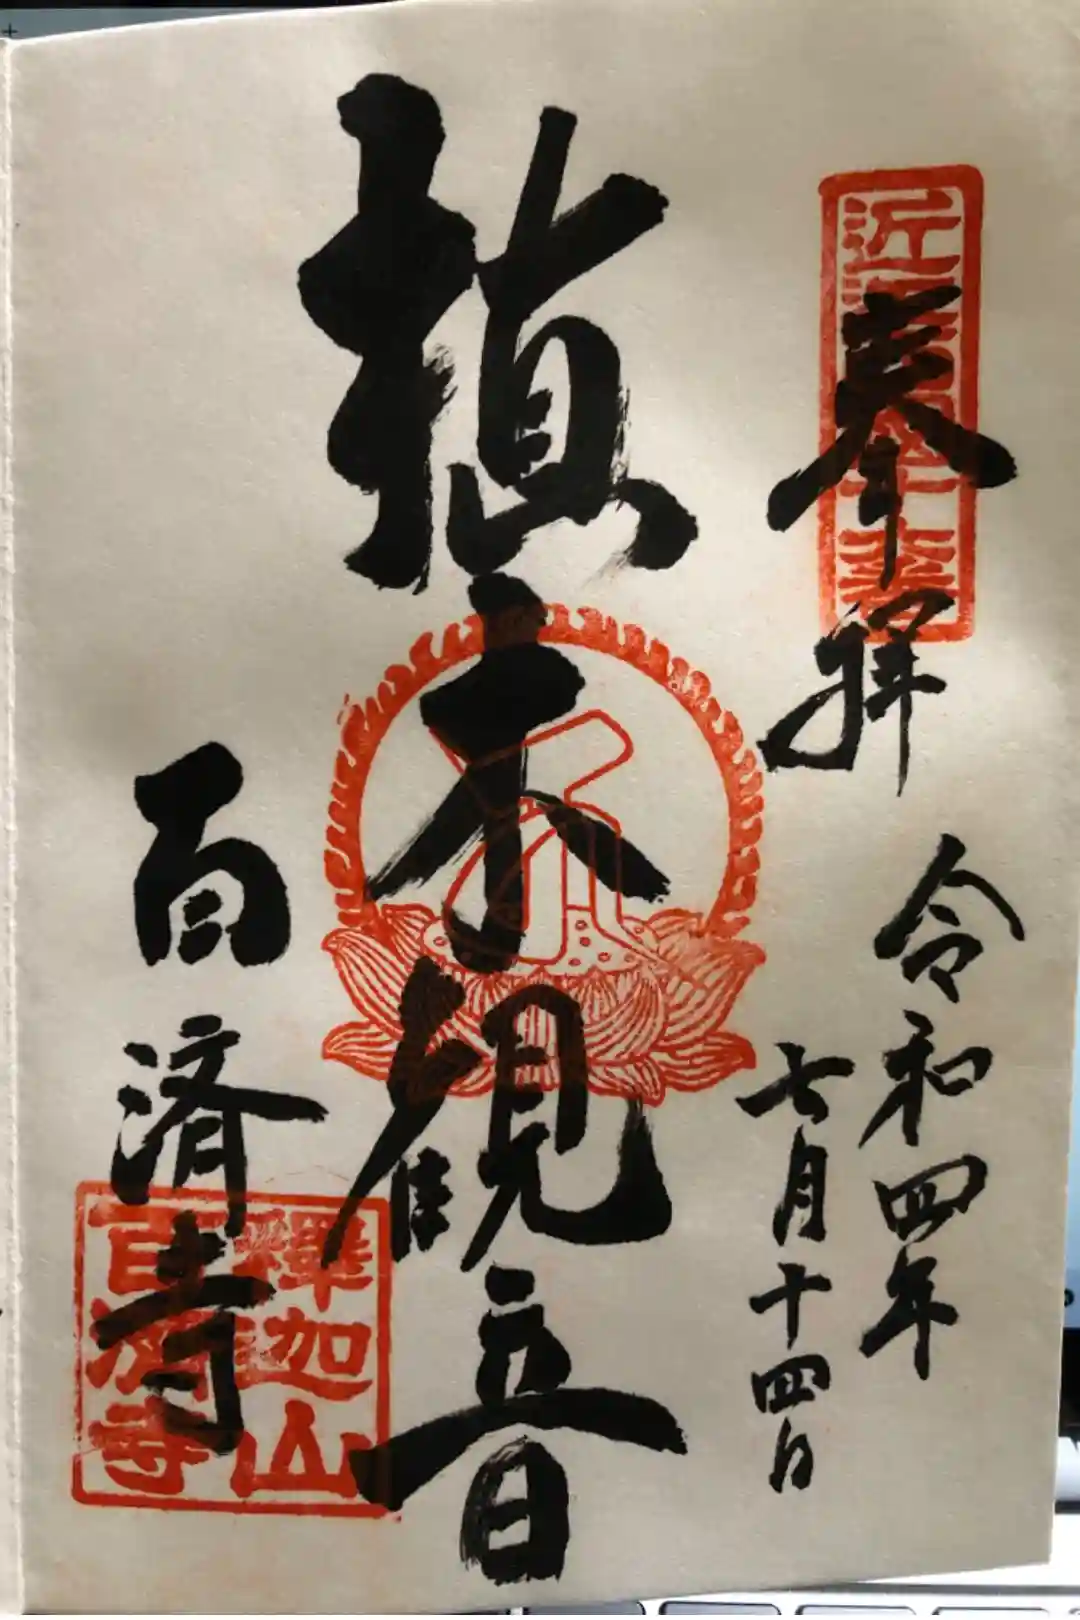 奉拝
令和四年
七月十四日
植木観音
百済寺
釋迦山
百濟寺